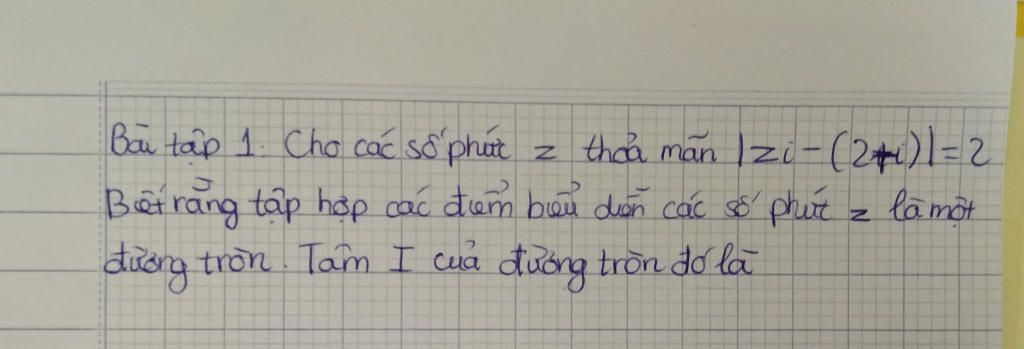 Bài tập 1. Cho các số phức z thoả mãn |zi-(2+i)|=2
Biết rằng tập hợp các điểm biểu diễn các số phức z là một
đường tròn. Tâm I của đường tròn đó là